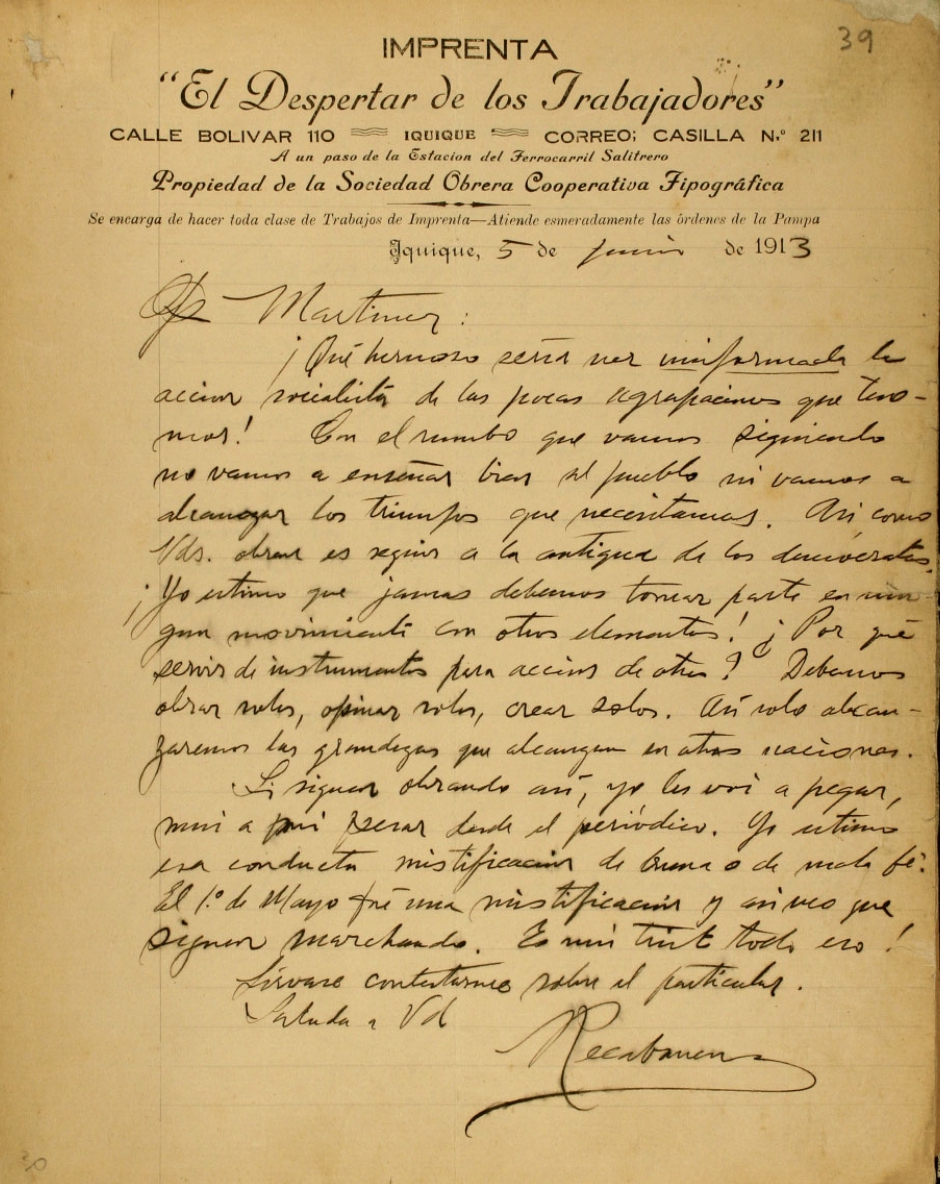 39
IMPRENTA
"El Despertar de los Trabajadores"
CALLE BOLIVAR 110 IQUIQUE CORREO; CASILLA N.º 211
A un paso de la Estacion del Ferrocarril Salitrero
Propiedad de la Sociedad Obrera Cooperativa Tipográfica
Se encarga de hacer toda clase de Trabajos de Imprenta—Atiende esmeradamente las órdenes de la Pampa
Iquique, 5 de junio de 1913
Martinez:
¡Qué hermoso seria ver uniformada la
accion socialista de las pocas agrupaciones que tene-
mos! Con el rumbo que vamos siguiendo
no vamos a enseñar bien al pueblo ni vamos a
alcanzar los triunfos que necesitamos. Asi como
Vds. obran es seguir a la antigua de los demócratas.
¡Yo estimo que jamas debemos tomar parte en nin-
gun movimiento con otros elementos! ¿Por qué
servir de instrumentos para accion de otros? Debemos
obrar solos, opinar solos, crear solos. Asi solo alcan-
zaremos las grandezas que alcanzan en otras naciones.
Si siguen obrando asi, yo les voi a pegar,
mui a mi pesar desde el periódico. Yo estimo
esa conducta mistificacion de buena o de mala fé.
El 1.º de Mayo fué una mistificacion y asi veo que
siguen marchando. Es mui triste todo eso!
Sírvase contestarme sobre el particular.
Saluda a Vd
Recabarren
30